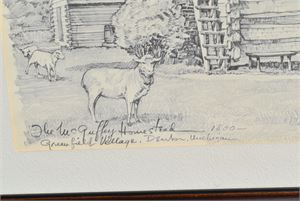 The McGuffey Homestead 1800—
Greenfield Village, Michigan